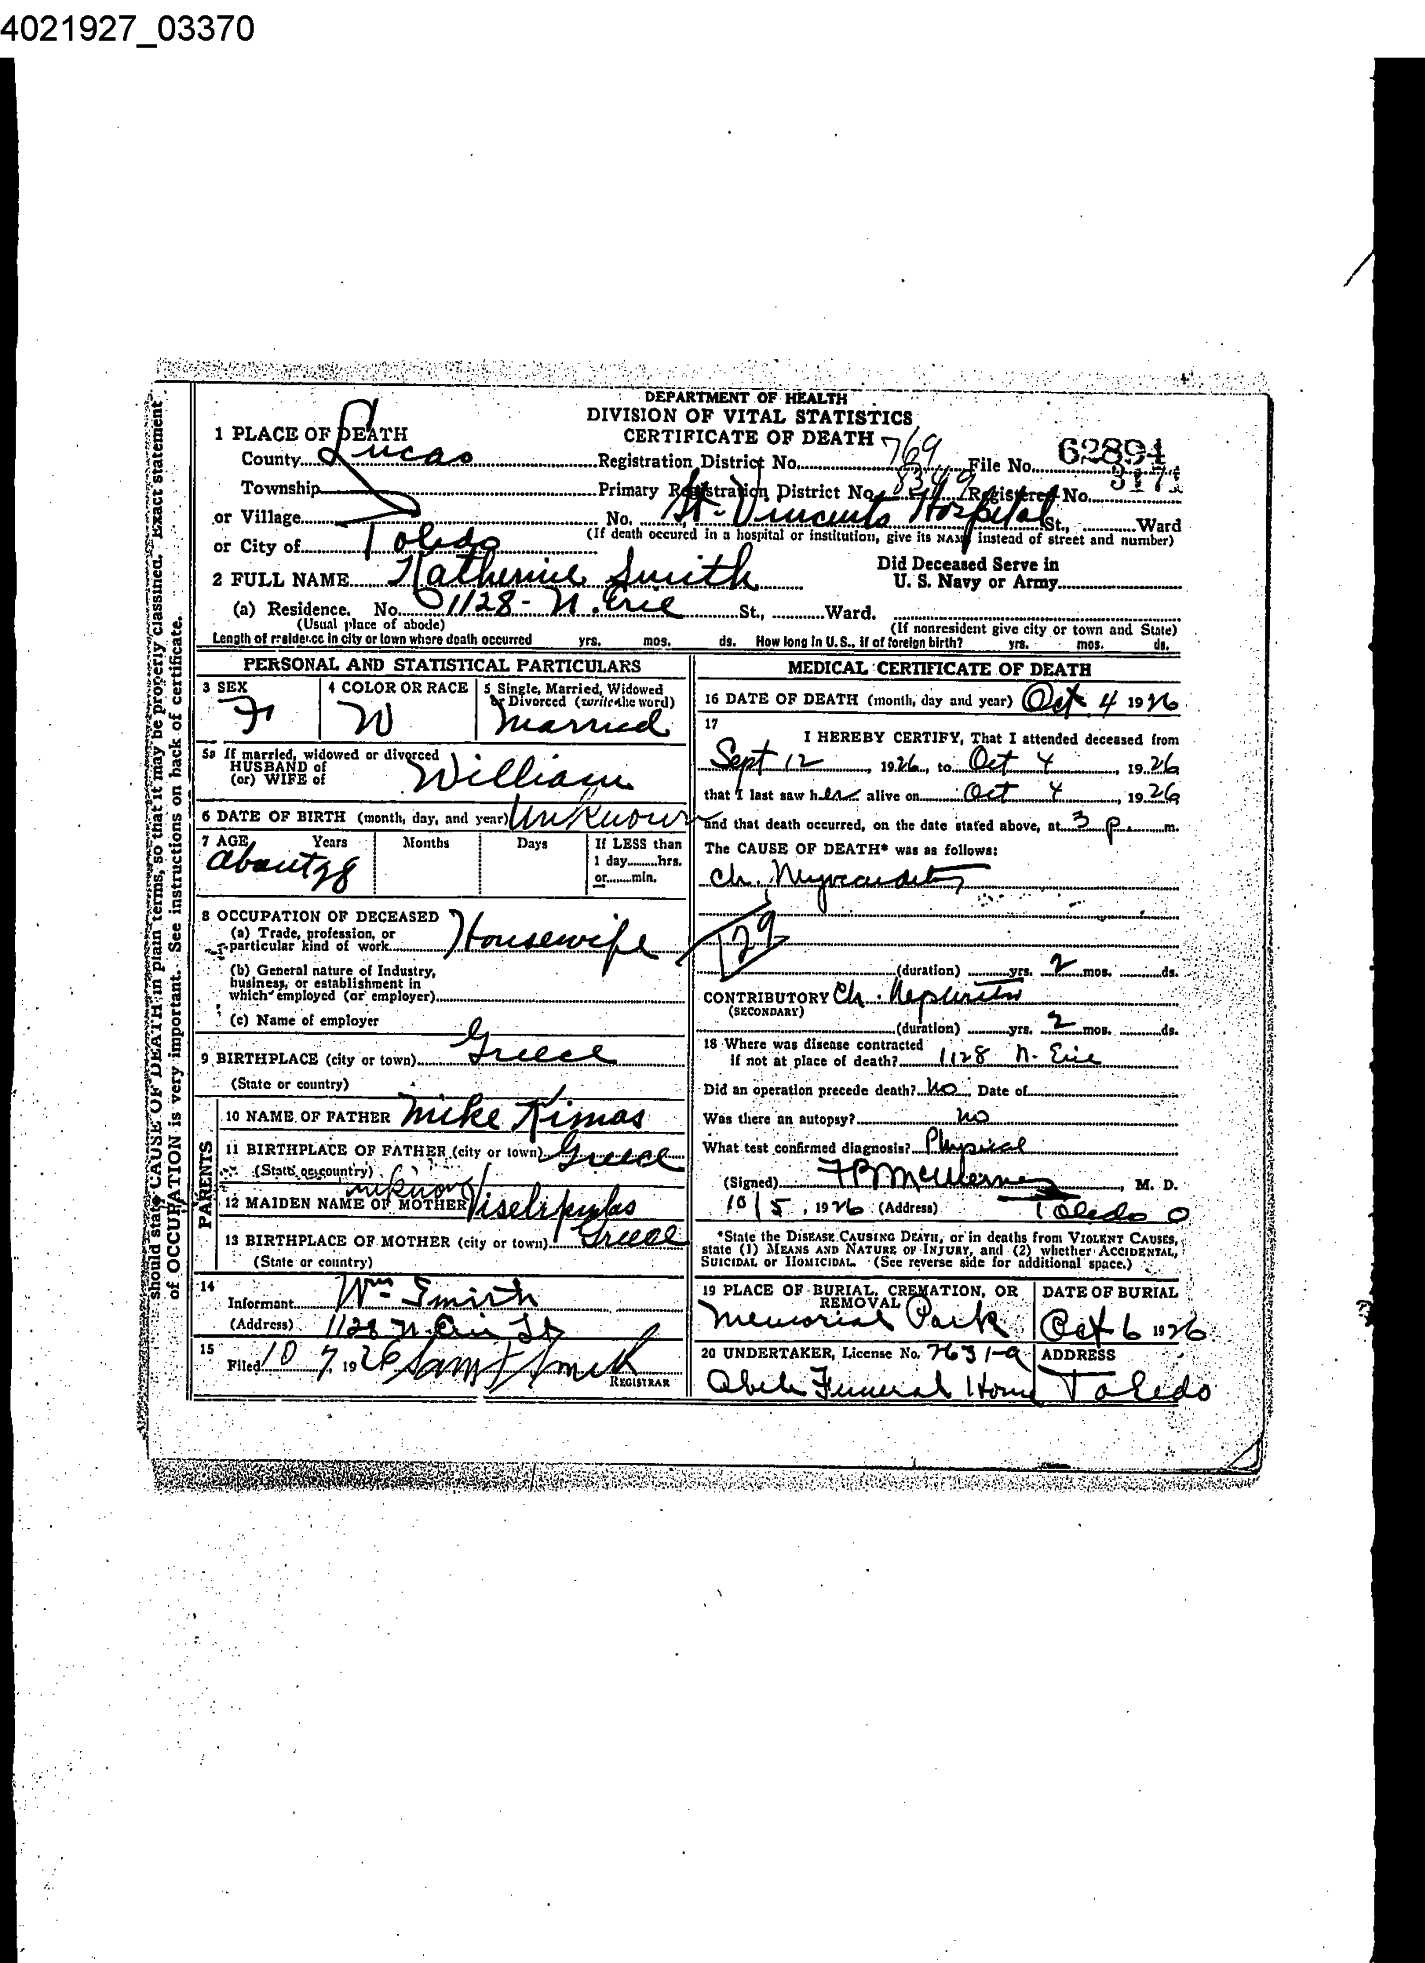 4021927_03370
DEPARTMENT OF HEALTH
DIVISION OF VITAL STATISTICS
CERTIFICATE OF DEATH
1 PLACE OF DEATH
County Lucas Registration District No. 769 File No. 62894
Township Primary Registration District No. 8349 Registered No. 3171
or Village No. St. Vincents Hospital St., Ward
(If death occured in a hospital or institution, give its NAME instead of street and number)
or City of Toledo
2 FULL NAME Katherine Smith
Did Deceased Serve in
U. S. Navy or Army
(a) Residence. No. 1128 - N. Erie St., Ward.
(Usual place of abode)
(If nonresident give city or town and State)
Length of residence in city or town where death occurred yrs. mos. ds. How long in U.S., if of foreign birth? yrs. mos. ds.
PERSONAL AND STATISTICAL PARTICULARS
3 SEX
F
4 COLOR OR RACE
W
5 Single, Married, Widowed
or Divorced (write the word)
Married
5a If married, widowed or divorced
HUSBAND of
(or) WIFE of William
6 DATE OF BIRTH (month, day, and year) Unknown
7 AGE Years Months Days If LESS than
1 day hrs.
or min.
about
8 OCCUPATION OF DECEASED
(a) Trade, profession, or
particular kind of work Housewife
(b) General nature of Industry,
business, or establishment in
which employed (or employer)
(c) Name of employer
9 BIRTHPLACE (city or town) Greece
(State or country)
PARENTS
10 NAME OF FATHER Mike Kimas
11 BIRTHPLACE OF FATHER (city or town) Greece
(State or country)
unknown
12 MAIDEN NAME OF MOTHER
13 BIRTHPLACE OF MOTHER (city or town) Greece
(State or country)
14
Informant Wm Smith
(Address) 1128 N. Erie St
15
Filed 10 7, 1926
REGISTRAR
MEDICAL CERTIFICATE OF DEATH
16 DATE OF DEATH (month, day and year) Oct 4 1926
17
I HEREBY CERTIFY, That I attended deceased from
Sept 12, 1926, to Oct 4, 1926
that I last saw her alive on Oct 4, 1926
and that death occurred, on the date stated above, at 3 p. m.
The CAUSE OF DEATH* was as follows:
Ch. Myocarditis
129
(duration) yrs. 2 mos. ds.
CONTRIBUTORY Ch. Nephritis
(SECONDARY)
(duration) yrs. 2 mos. ds.
18 Where was disease contracted
if not at place of death? 1128 N. Erie
Did an operation precede death? No Date of
Was there an autopsy? No
What test confirmed diagnosis? Physical
(Signed) , M. D.
10/5, 1926 (Address) Toledo O
*State the DISEASE CAUSING DEATH, or in deaths from VIOLENT CAUSES,
state (1) MEANS AND NATURE OF INJURY, and (2) whether ACCIDENTAL,
SUICIDAL or HOMICIDAL. (See reverse side for additional space.)
19 PLACE OF BURIAL, CREMATION, OR
REMOVAL
Memorial Park
DATE OF BURIAL
Oct 6 1926
20 UNDERTAKER, License No. 7631-a
Abele Funeral Home
ADDRESS
Toledo
should state CAUSE OF DEATH in plain terms, so that it may be properly classified. Exact statement
of OCCUPATION is very important. See instructions on back of certificate.